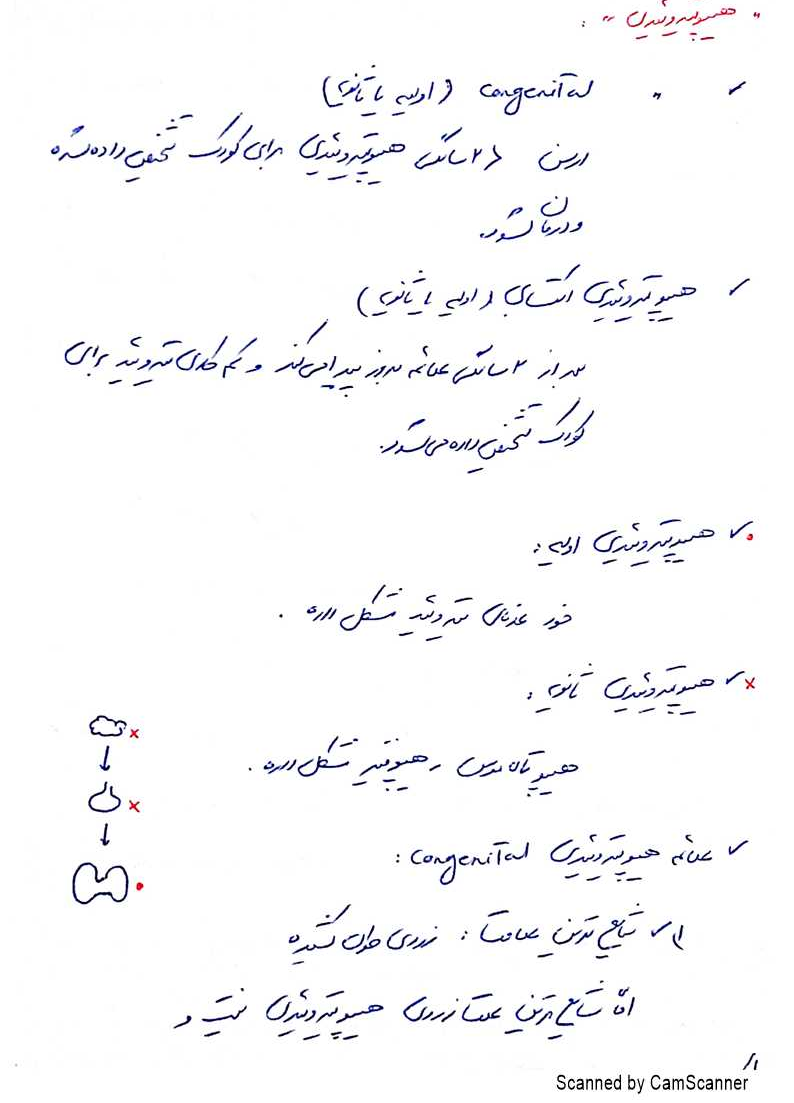 " هیپوتیروئیدی " :
✓ " congenital (اولیه یا ثانویه)
<۲ سالگی هیپوتیروئیدی برای کودک تشخیص داده شده
و درمان شود.
✓ هیپوتیروئیدی اکتسابی (اولیه یا ثانویه)
بعد از ۲ سالگی علائم بروز پیدا می‌کند و کم کاری تیروئید برای
کودک تشخیص داده می‌شود.
✓ هیپوتیروئیدی اولیه :
خود غده‌ی تیروئید مشکل داره .
✓ x هیپوتیروئیدی ثانویه :
هیپوتالاموس - هیپوفیز مشکل داره .
x
x
✓ علائم هیپوتیروئیدی congenital :
۱) ✓ شایع ترین علامت : زردی طول کشیده
امّا شایع ترین علت زردی هیپوتیروئیدی نیست و
۱/
Scanned by CamScanner